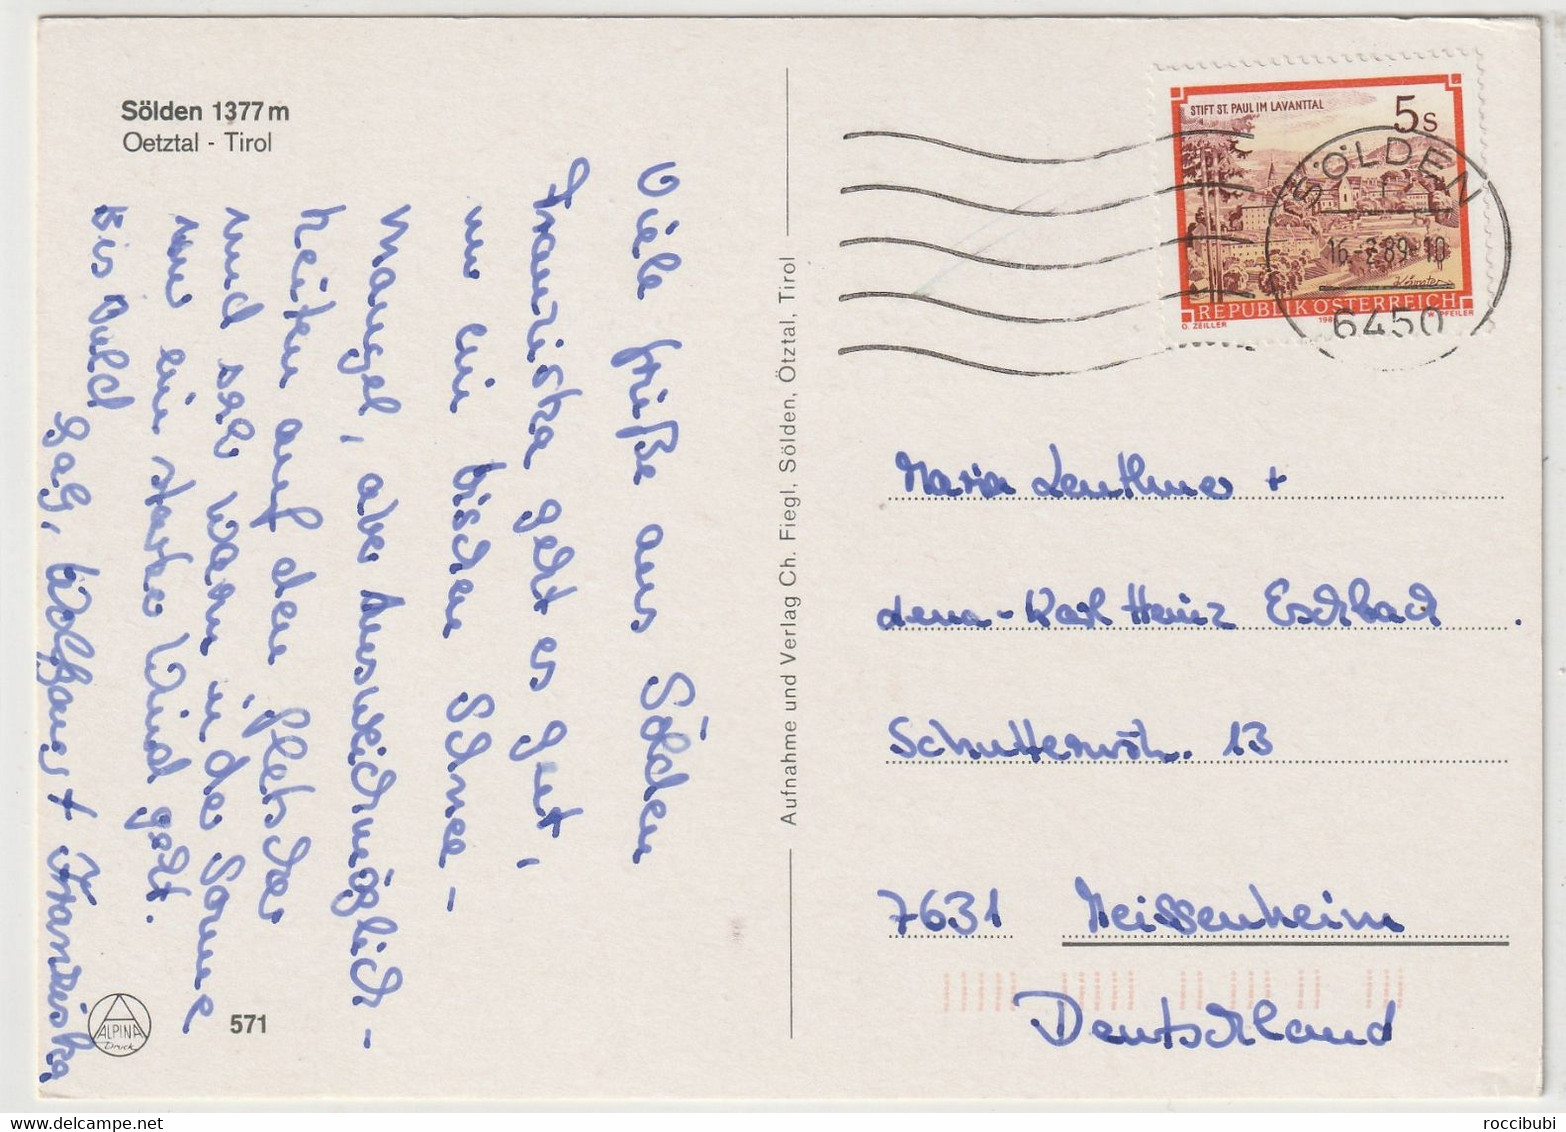 Sölden 1377 m
Oetztal - Tirol
Viele Grüße aus Sölden
Franziska geht es gut,
nur ein bischen Schnee-
Mangel, aber Ausweichmöglich-
keiten auf den Gletscher
und sehr warm in der Sonne
wenn ein starker Wind geht.
Bis bald
Gag, Wolfgang + Franziska
ALPINA
Druck
571
Aufnahme und Verlag Ch. Fiegl, Sölden, Ötztal, Tirol
STIFT ST. PAUL IM LAVANTTAL
5 S
REPUBLIK ÖSTERREICH
O. ZEILLER
PFEILER
SÖLDEN
16.-2.89-10
6450
Maria Leuthner +
Karl Heinz Eschbach
Schutternstr. 13
7631 Meissenheim
Deutschland
roccibubi